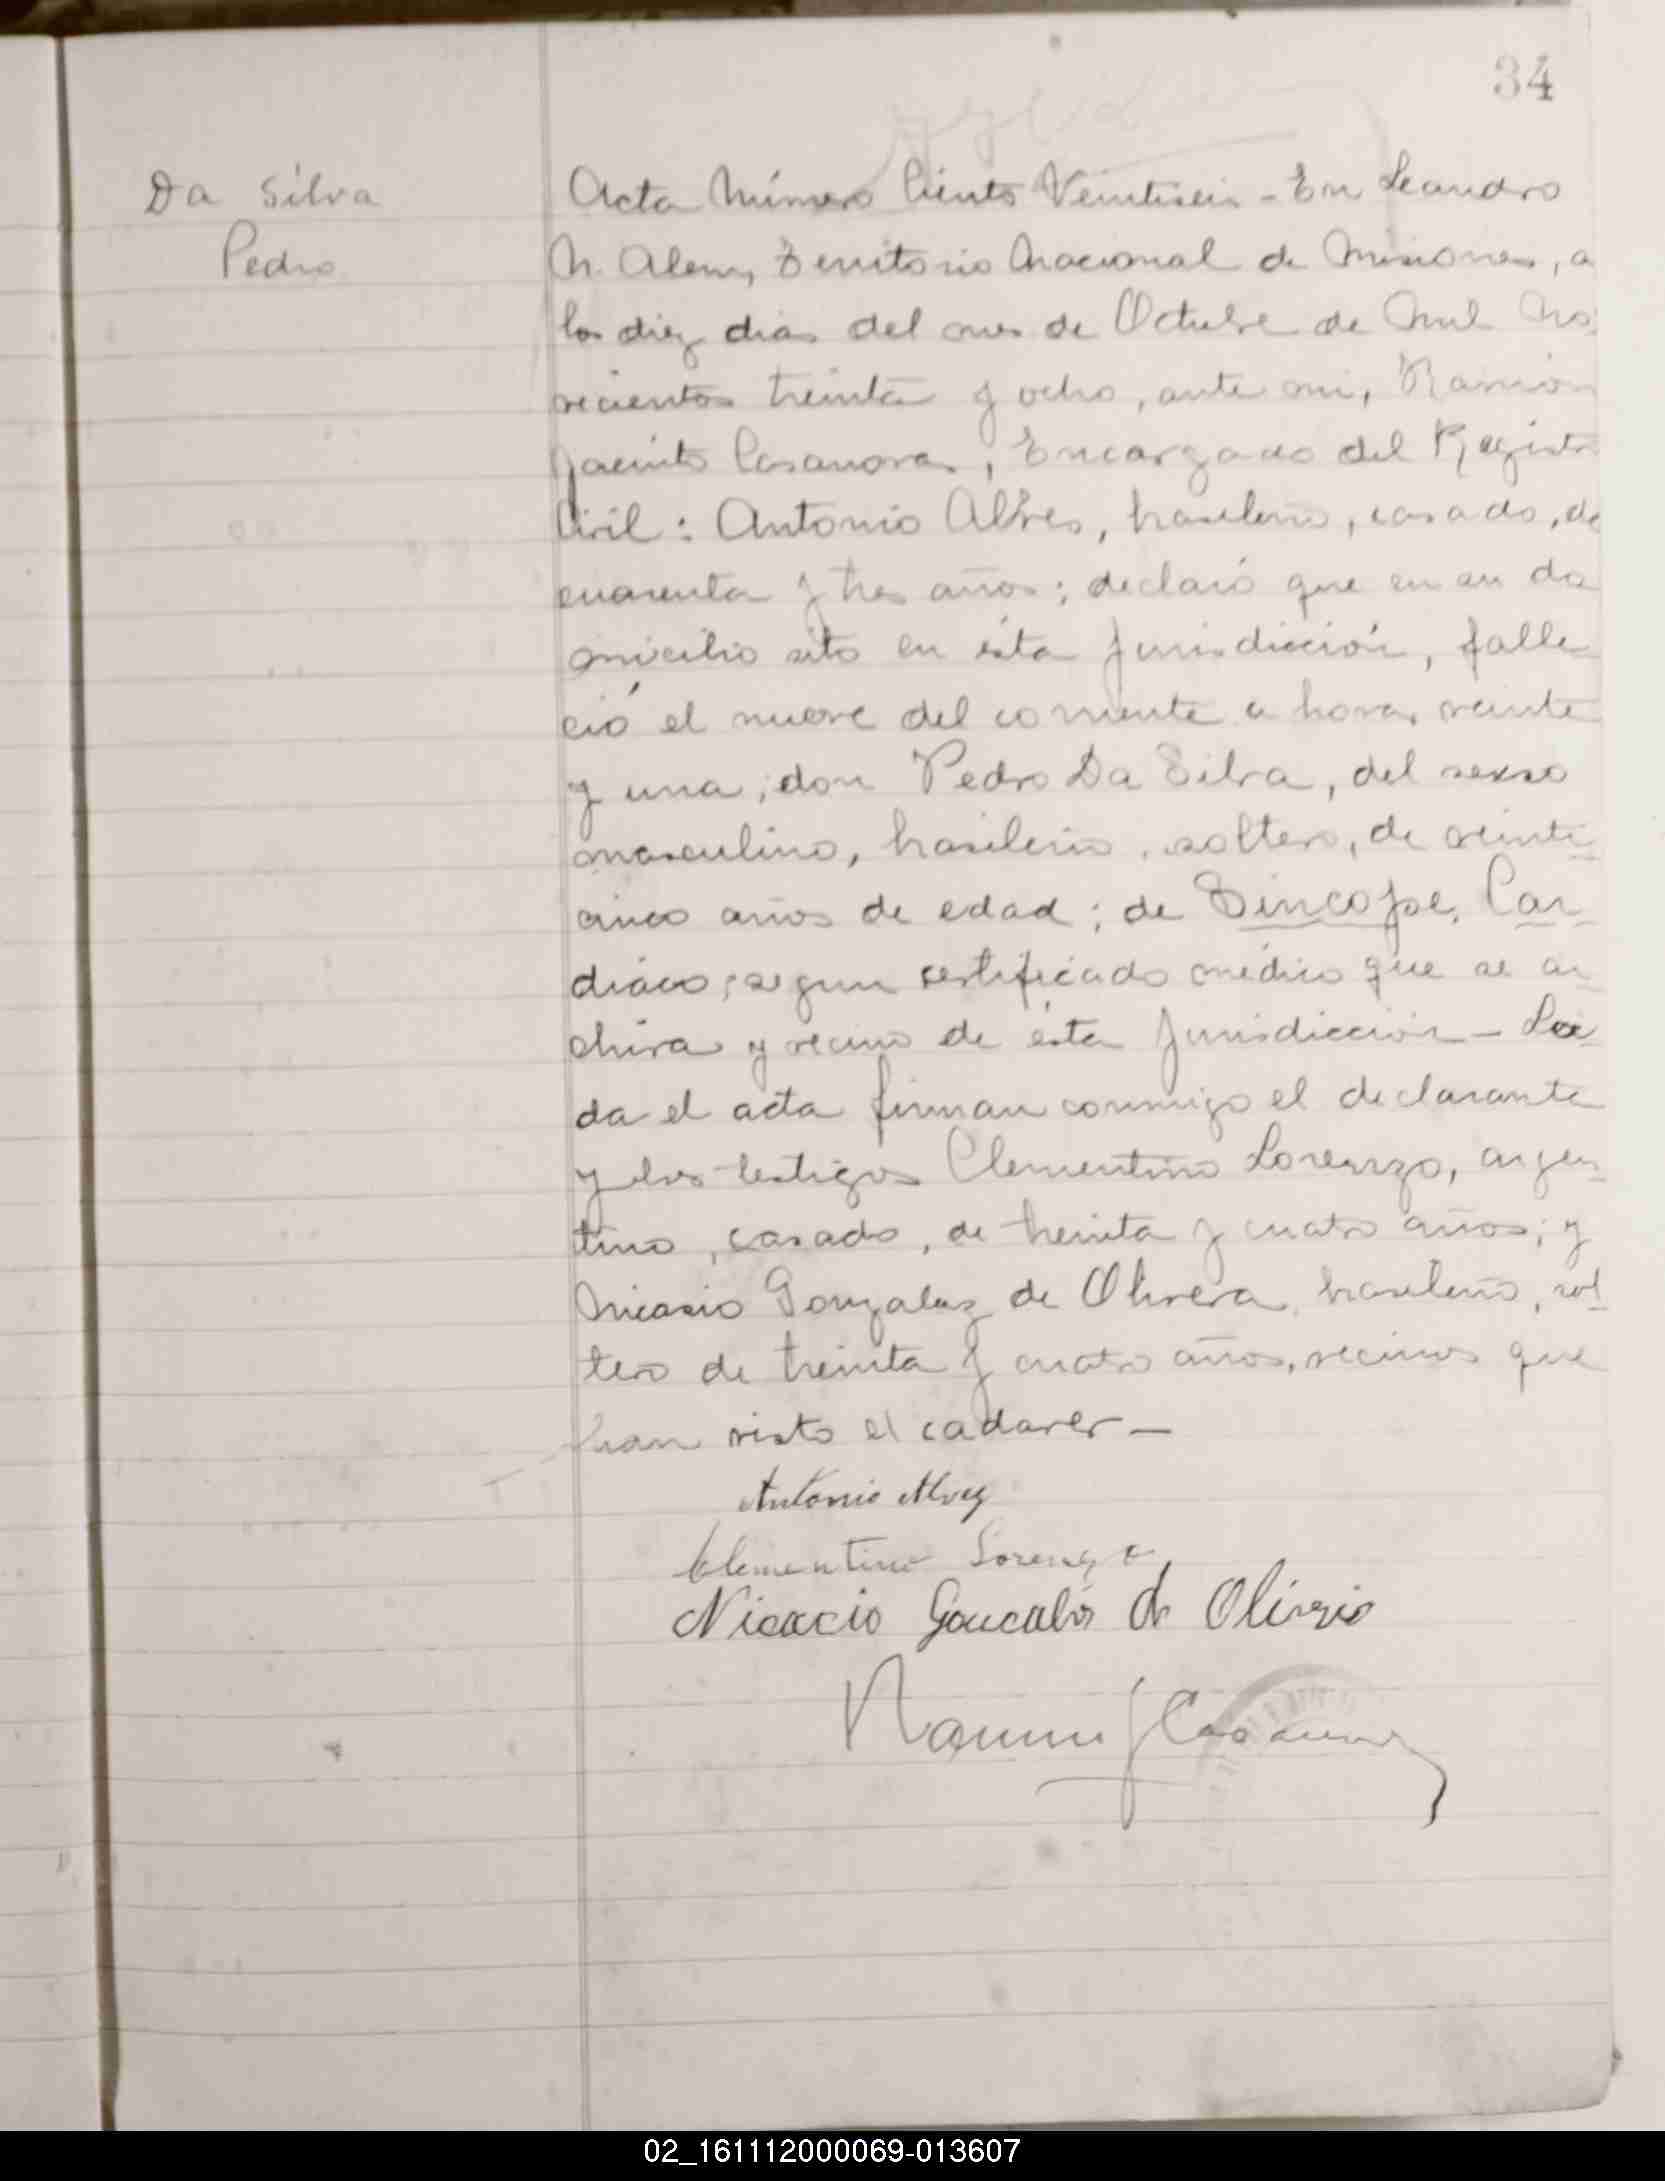 34
Da Silva
Pedro
Acta Número Ciento Veintiseis - En Leandro
N. Alem, Territorio Nacional de Misiones, a
los diez dias del mes de Octubre de Mil No-
vecientos treinta y ocho, ante mi, Ramón
Jacinto Casanova, Encargado del Registro
Civil: Antonio Alves, brasileño, casado, de
cuarenta y tres años; declaró que en su do
micilio sito en ésta Jurisdicción, falle
ció el nueve del corriente a horas veinte
y una; don Pedro Da Silva, del sexso
masculino, brasileño, soltero, de veinti-
cinco años de edad; de Sincope Car-
diaco; segun certificado médico que se ar-
chiva y vecino de ésta Jurisdicción - Leí-
da el acta firman conmigo el declarante
y los testigos Clementino Lorenzo, argen-
tino, casado, de treinta y cuatro años; y
Nicasio Gonzalez de Olivera, brasileño, sol-
tero de treinta y cuatro años, vecinos que
han visto el cadaver -
Antonio Alvez
Clementino Lorenzo
Nicacio Goncalvis de
Ramon J Casanova
02_161112000069-013607